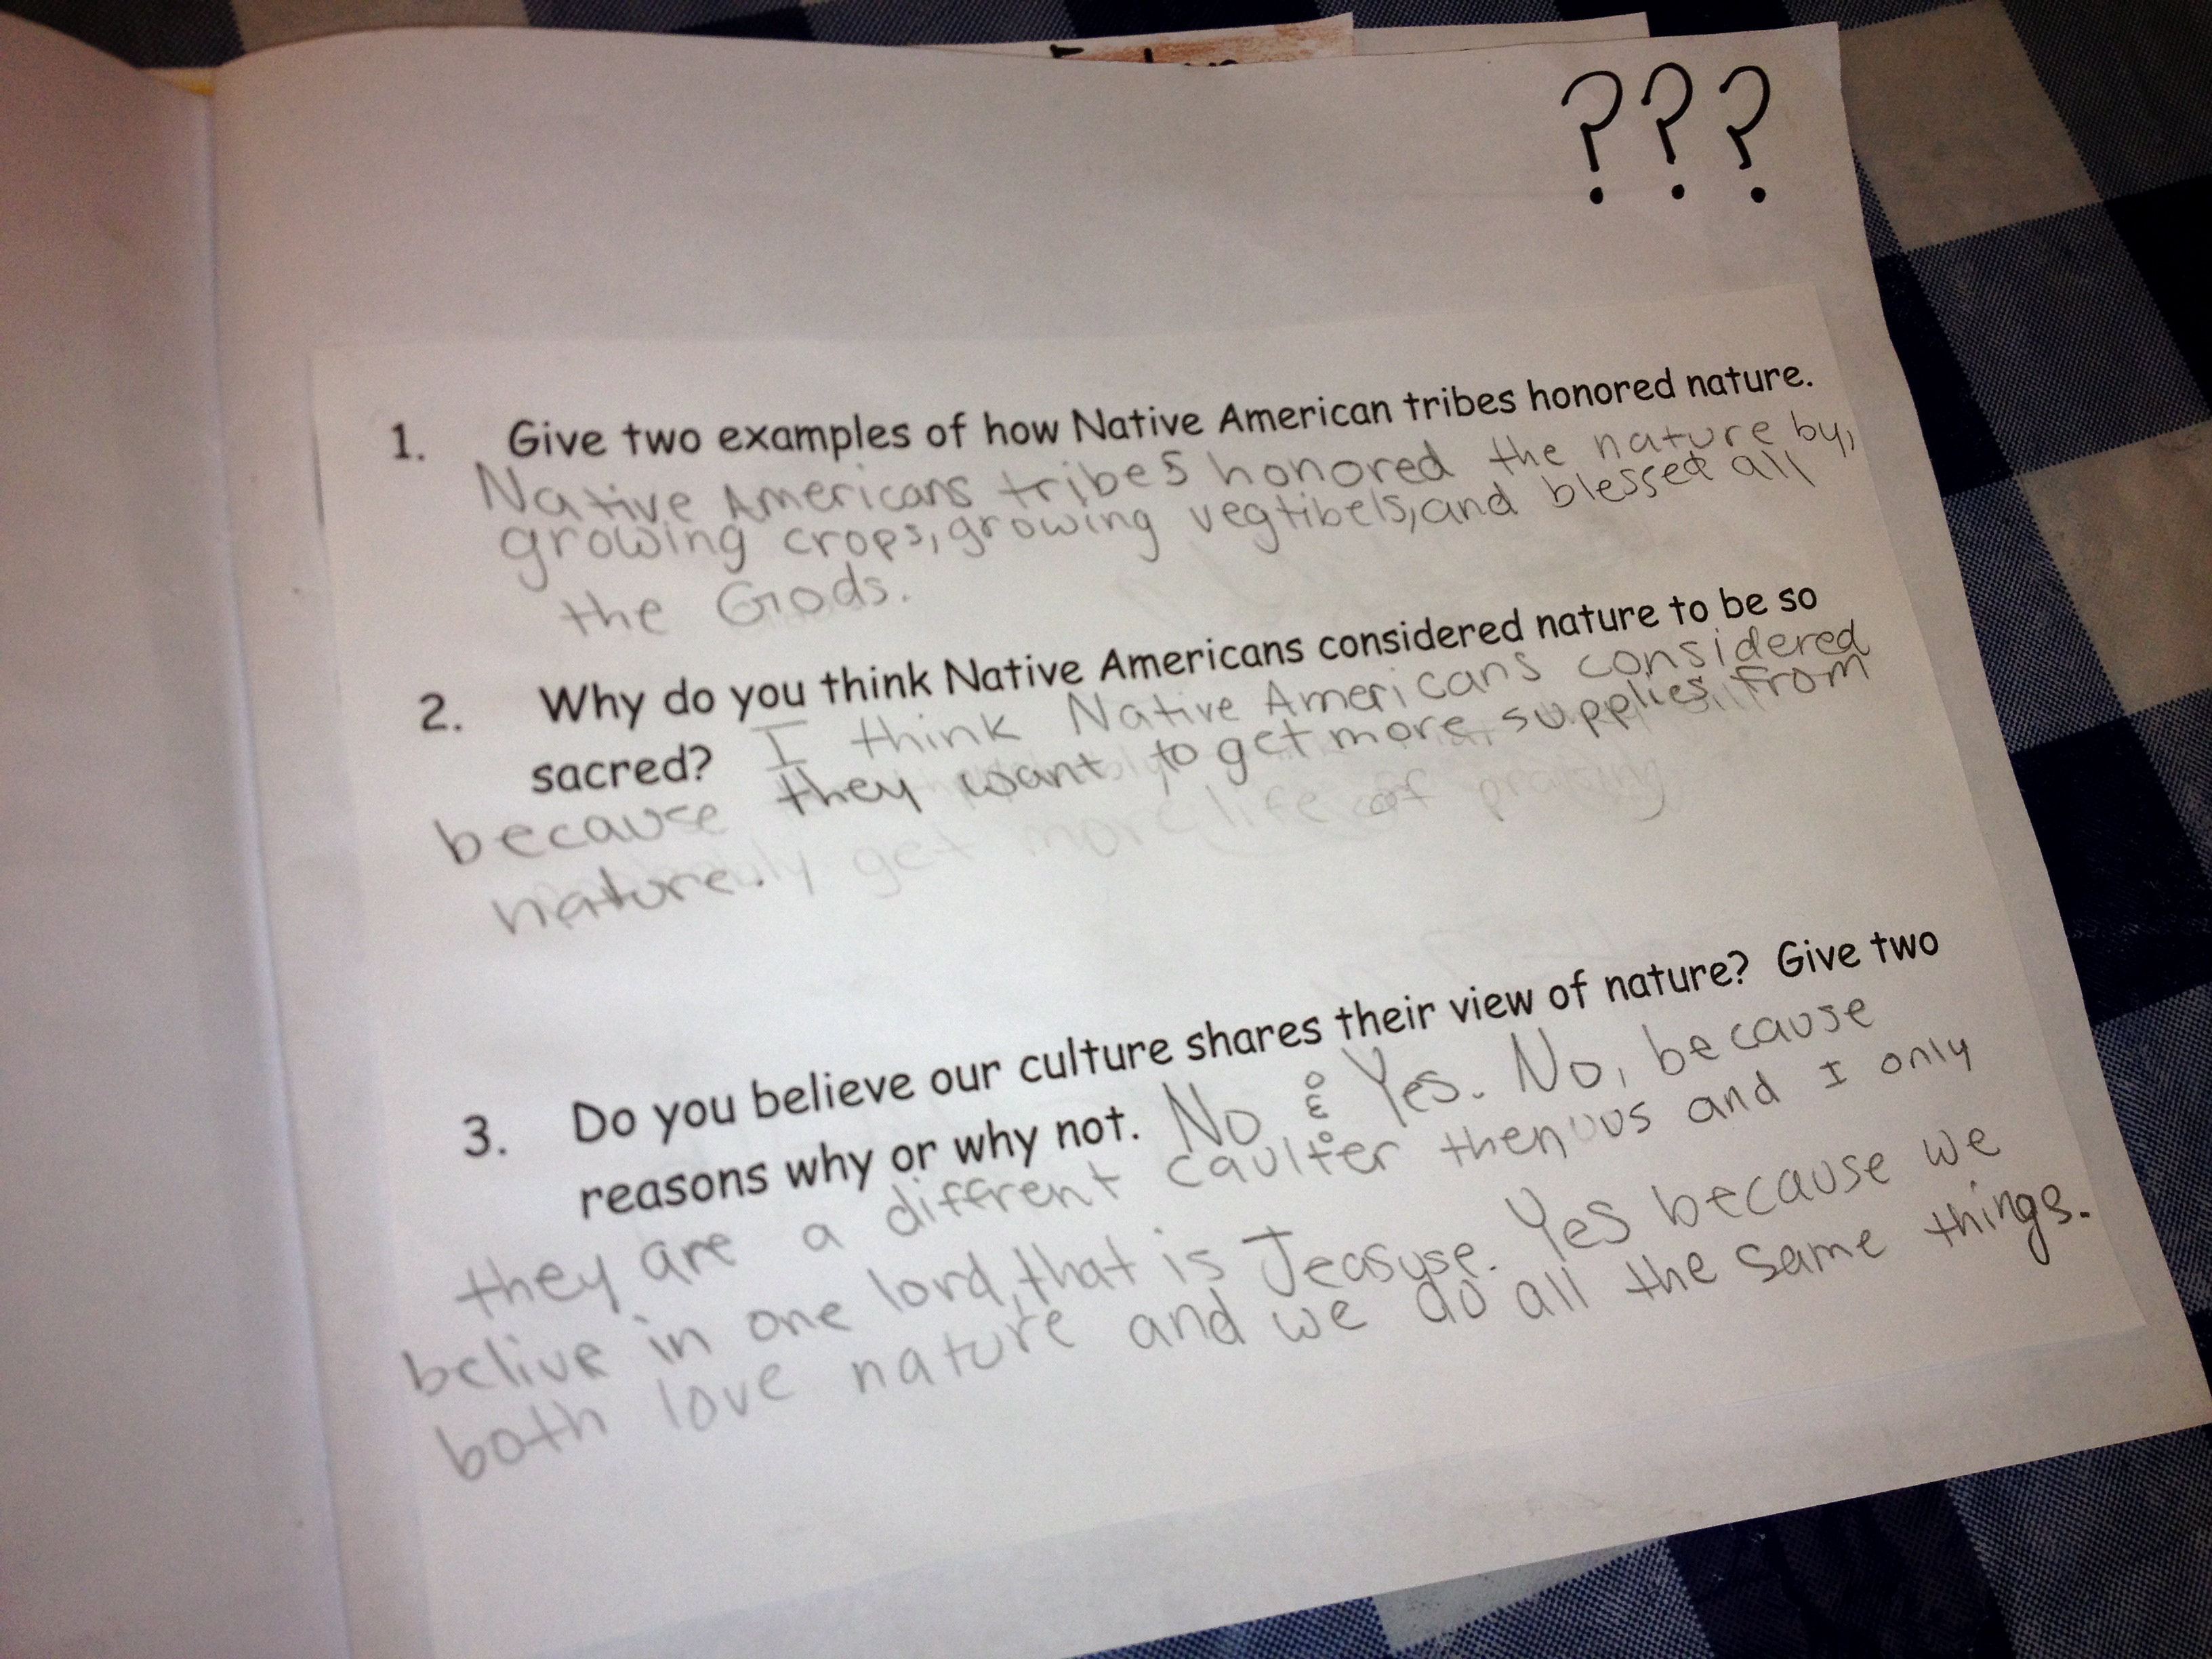 ???
1. Give two examples of how Native American tribes honored nature.
Native Americans tribes honored the nature by,
growing crops, growing vegtibels, and blessed all
the Gods.
2. Why do you think Native Americans considered nature to be so
sacred? I think Native Americans considered
because they want to get more supplies from
nature.
get more life of praising
3. Do you believe our culture shares their view of nature? Give two
reasons why or why not. No & Yes. No, because
they are a diffrent caulter then us and I only
belive in one lord, that is Jeasyse. Yes because we
both love nature and we do all the same things.